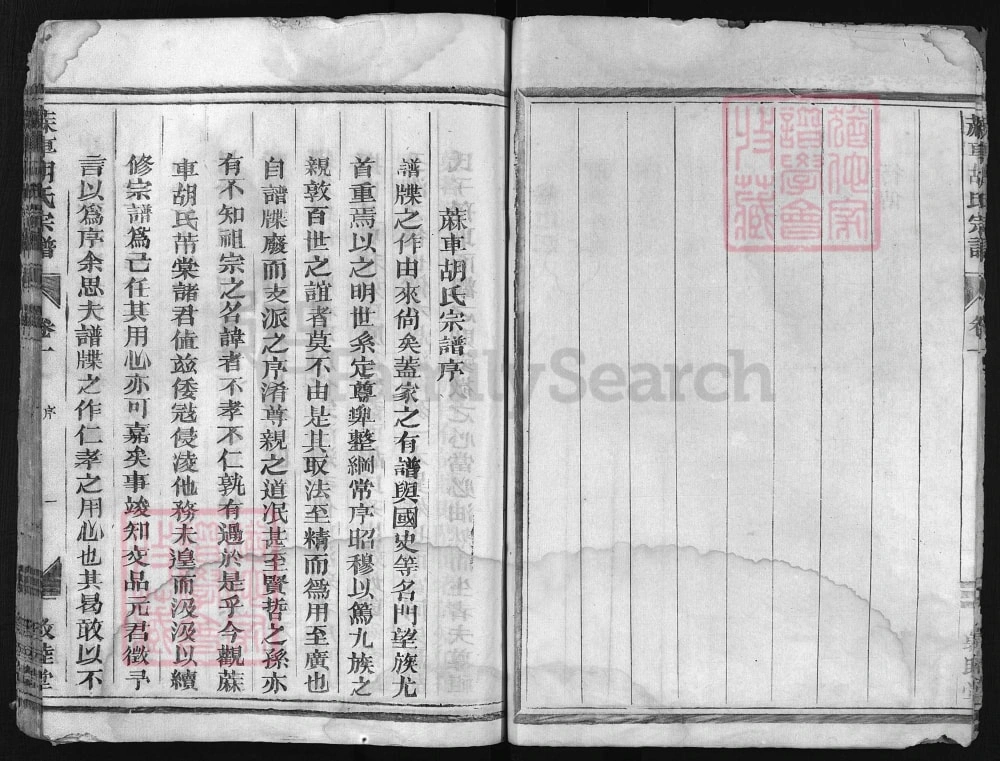 蔴車胡氏宗譜
卷一
蔴車胡氏宗譜序
譜牒之作由來尙矣蓋家之有譜與國史等名門望族尤
首重焉以之明世系定尊卑整綱常序昭穆以篤九族之
親敦百世之誼者莫不由是其取法至精而爲用至廣也
自譜牒廢而支派之序淆尊親之道泯甚至賢哲之孫亦
有不知祖宗之名諱者不孝不仁孰有過於是乎今觀蔴
車胡氏芾棠諸君値玆倭寇侵凌他務未遑而汲汲以續
修宗譜爲己任其用心亦可嘉矣事竣知交品元君徵予
言以爲序余思夫譜牒之作仁孝之用心也其曷敢以不
蔴車胡氏宗譜
卷一
序
一
敦睦堂
FamilySearch